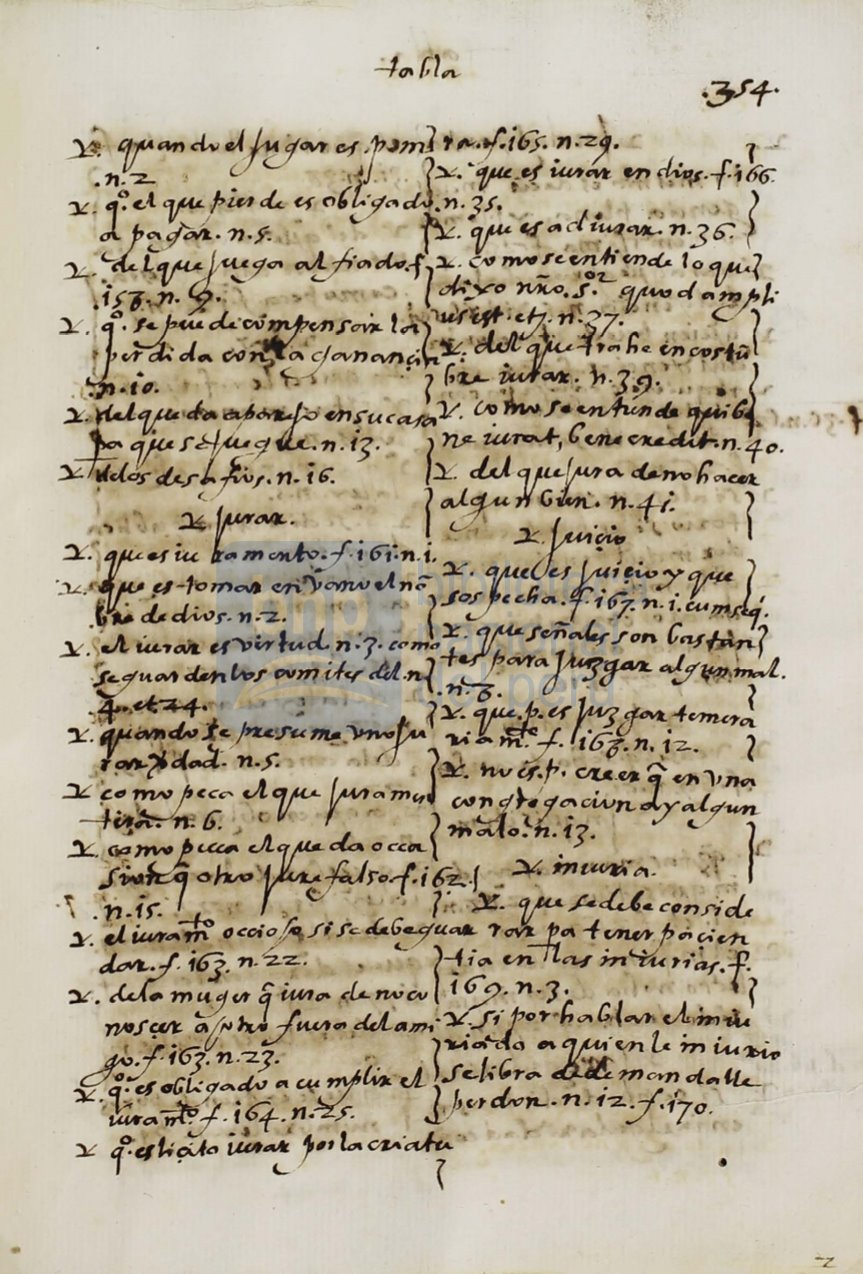 tabla
.354.
℣. quando el jugar es p.om̃
.n.2
℣. q̃º. el que pierde es obligado
a pagar. n.5.
℣. del que juega al fiado. f
.158. n. 9.
℣. qº. se puede compensar la
perdida con la ganancia
.n.10.
℣. del que da aparejo en su casa
pa que se juegue. n. 13.
℣. de los desafios. n. 16.
℣ jurar.
℣. que es iuramento. f. 161. n. 1.
℣. que es tomar en vano el nõ
bre de dios. n. 2.
℣. el iurar es virtud. n. 3. como
se guarden los comites del. n
.4. et 24.
℣. quando se presume. vno ju
rar dad. n. 5.
℣. como peca el que jura men
tira. n. 6.
℣. como pecca el que da occa
sion q̃ otro jure falso. f. 162.
.n. 15.
℣. el iuramtº occioso si se debe guar
dar. f. 163. n. 22.
℣. de la muger q̃ iura de no co
noscer a otro fuera del ami
go. f. 163. n. 23.
℣. qº. es obligado a cumplir el
iuramtº. f. 164. n. 25.
℣ qº. es licito iurar por la criatu
ra. f. 165. n. 29.
℣. que es iurar en dios. f. 166.
n. 35.
℣. que es adiurar. n. 36.
℣. como se entiende lo que
dixo nrõ. sºr quod ampli
us est. etz. n. 37.
℣. del que trahe en costũ
bre iurar. n. 39.
℣. como se entiende qui be
ne iurat, bene credit. n. 40.
℣. del que jura de no hacer
algun bien. n. 41.
℣ juiçio
℣. que es juiçio y que
sospecha. f. 167. n. 1. cum seq̃.
℣. que señales son bastan
tes para juzgar algun mal.
.n. 8.
℣. que. p. es juzgar temera
riamte. f. 168. n. 12.
℣. no es. p. creer q̃ en vna
congregacion ay algun
malo. n. 13.
℣. iniuria.
℣. que se debe conside
rar pa tener pacien
tia en las iniurias. f.
169. n. 3.
℣. si por hablar el iniu
riado a quien le iniurio
se libra de demandalle
perdon. n. 12. f. 170.